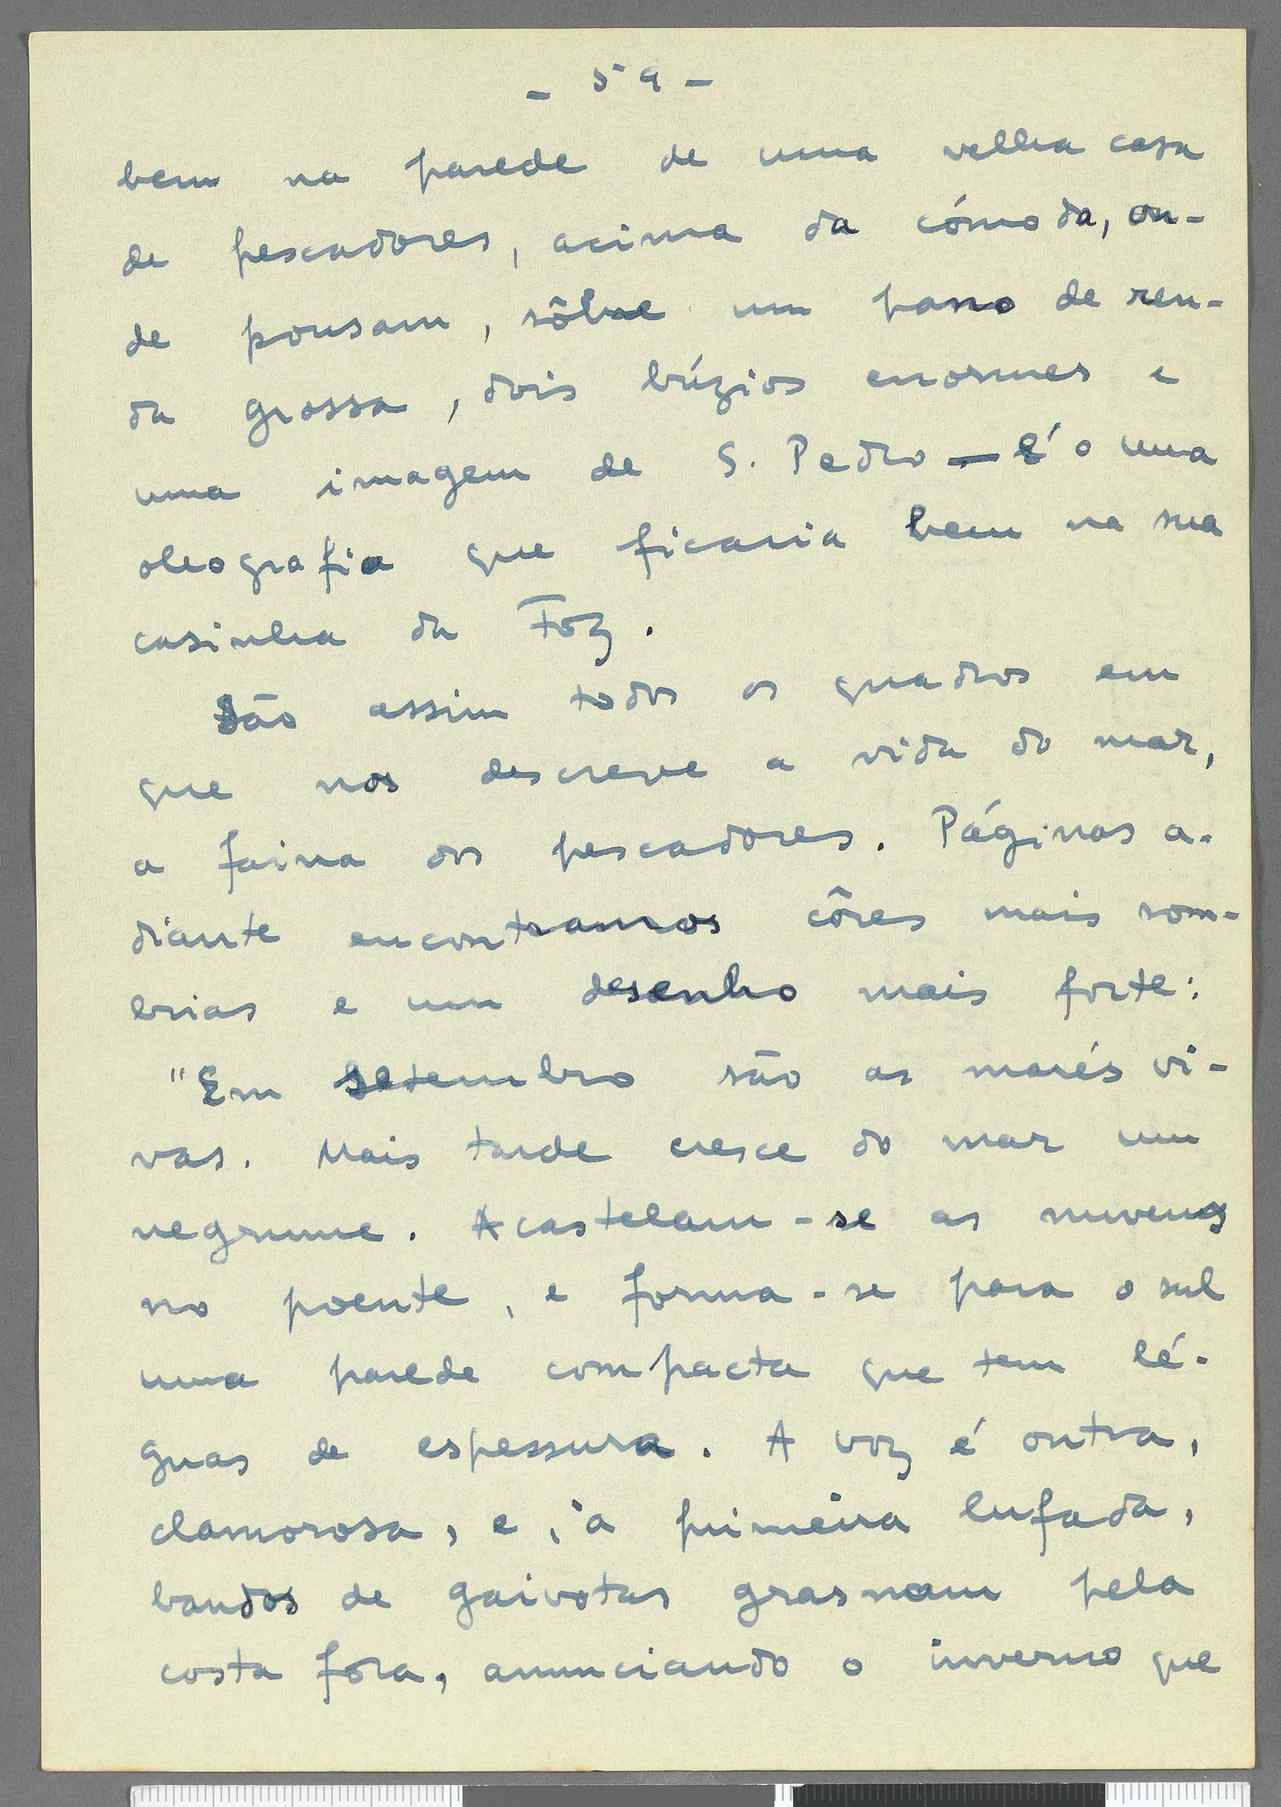 - 59 -
bem na parede de uma velha casa
de pescadores, acima da cómoda, on-
de pousam, sôbre um pano de ren-
da grossa, dois búzios enormes e
uma imagem de S. Pedro — É o uma
oleografia que ficaria bem na sua
casinha da Foz.
São assim todos os quadros em
que nos descreve a vida do mar,
a faina dos pescadores. Páginas a-
diante encontramos côres mais som-
brias e um desenho mais forte:
"Em setembro são as marés vi-
vas. Mais tarde cresce do mar um
negrume. Acastelam-se as nuvens
no poente, e forma-se para o sul
uma parede compacta que tem lé-
guas de espessura. A voz é outra,
clamorosa, e, à primeira lufada,
bandos de gaivotas grasnam pela
costa fora, anunciando o inverno que